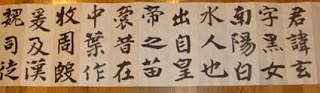 君諱玄
字黑女
南陽白
水人也
出自皇
帝之苗
裔昔在
中葉作
牧周殷
爰及漢
魏司徒